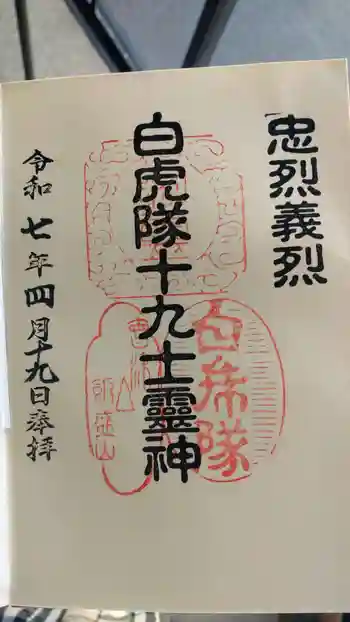 忠烈義烈
白虎隊十九士靈神
白虎隊
飯盛山
令和七年四月十九日奉拝